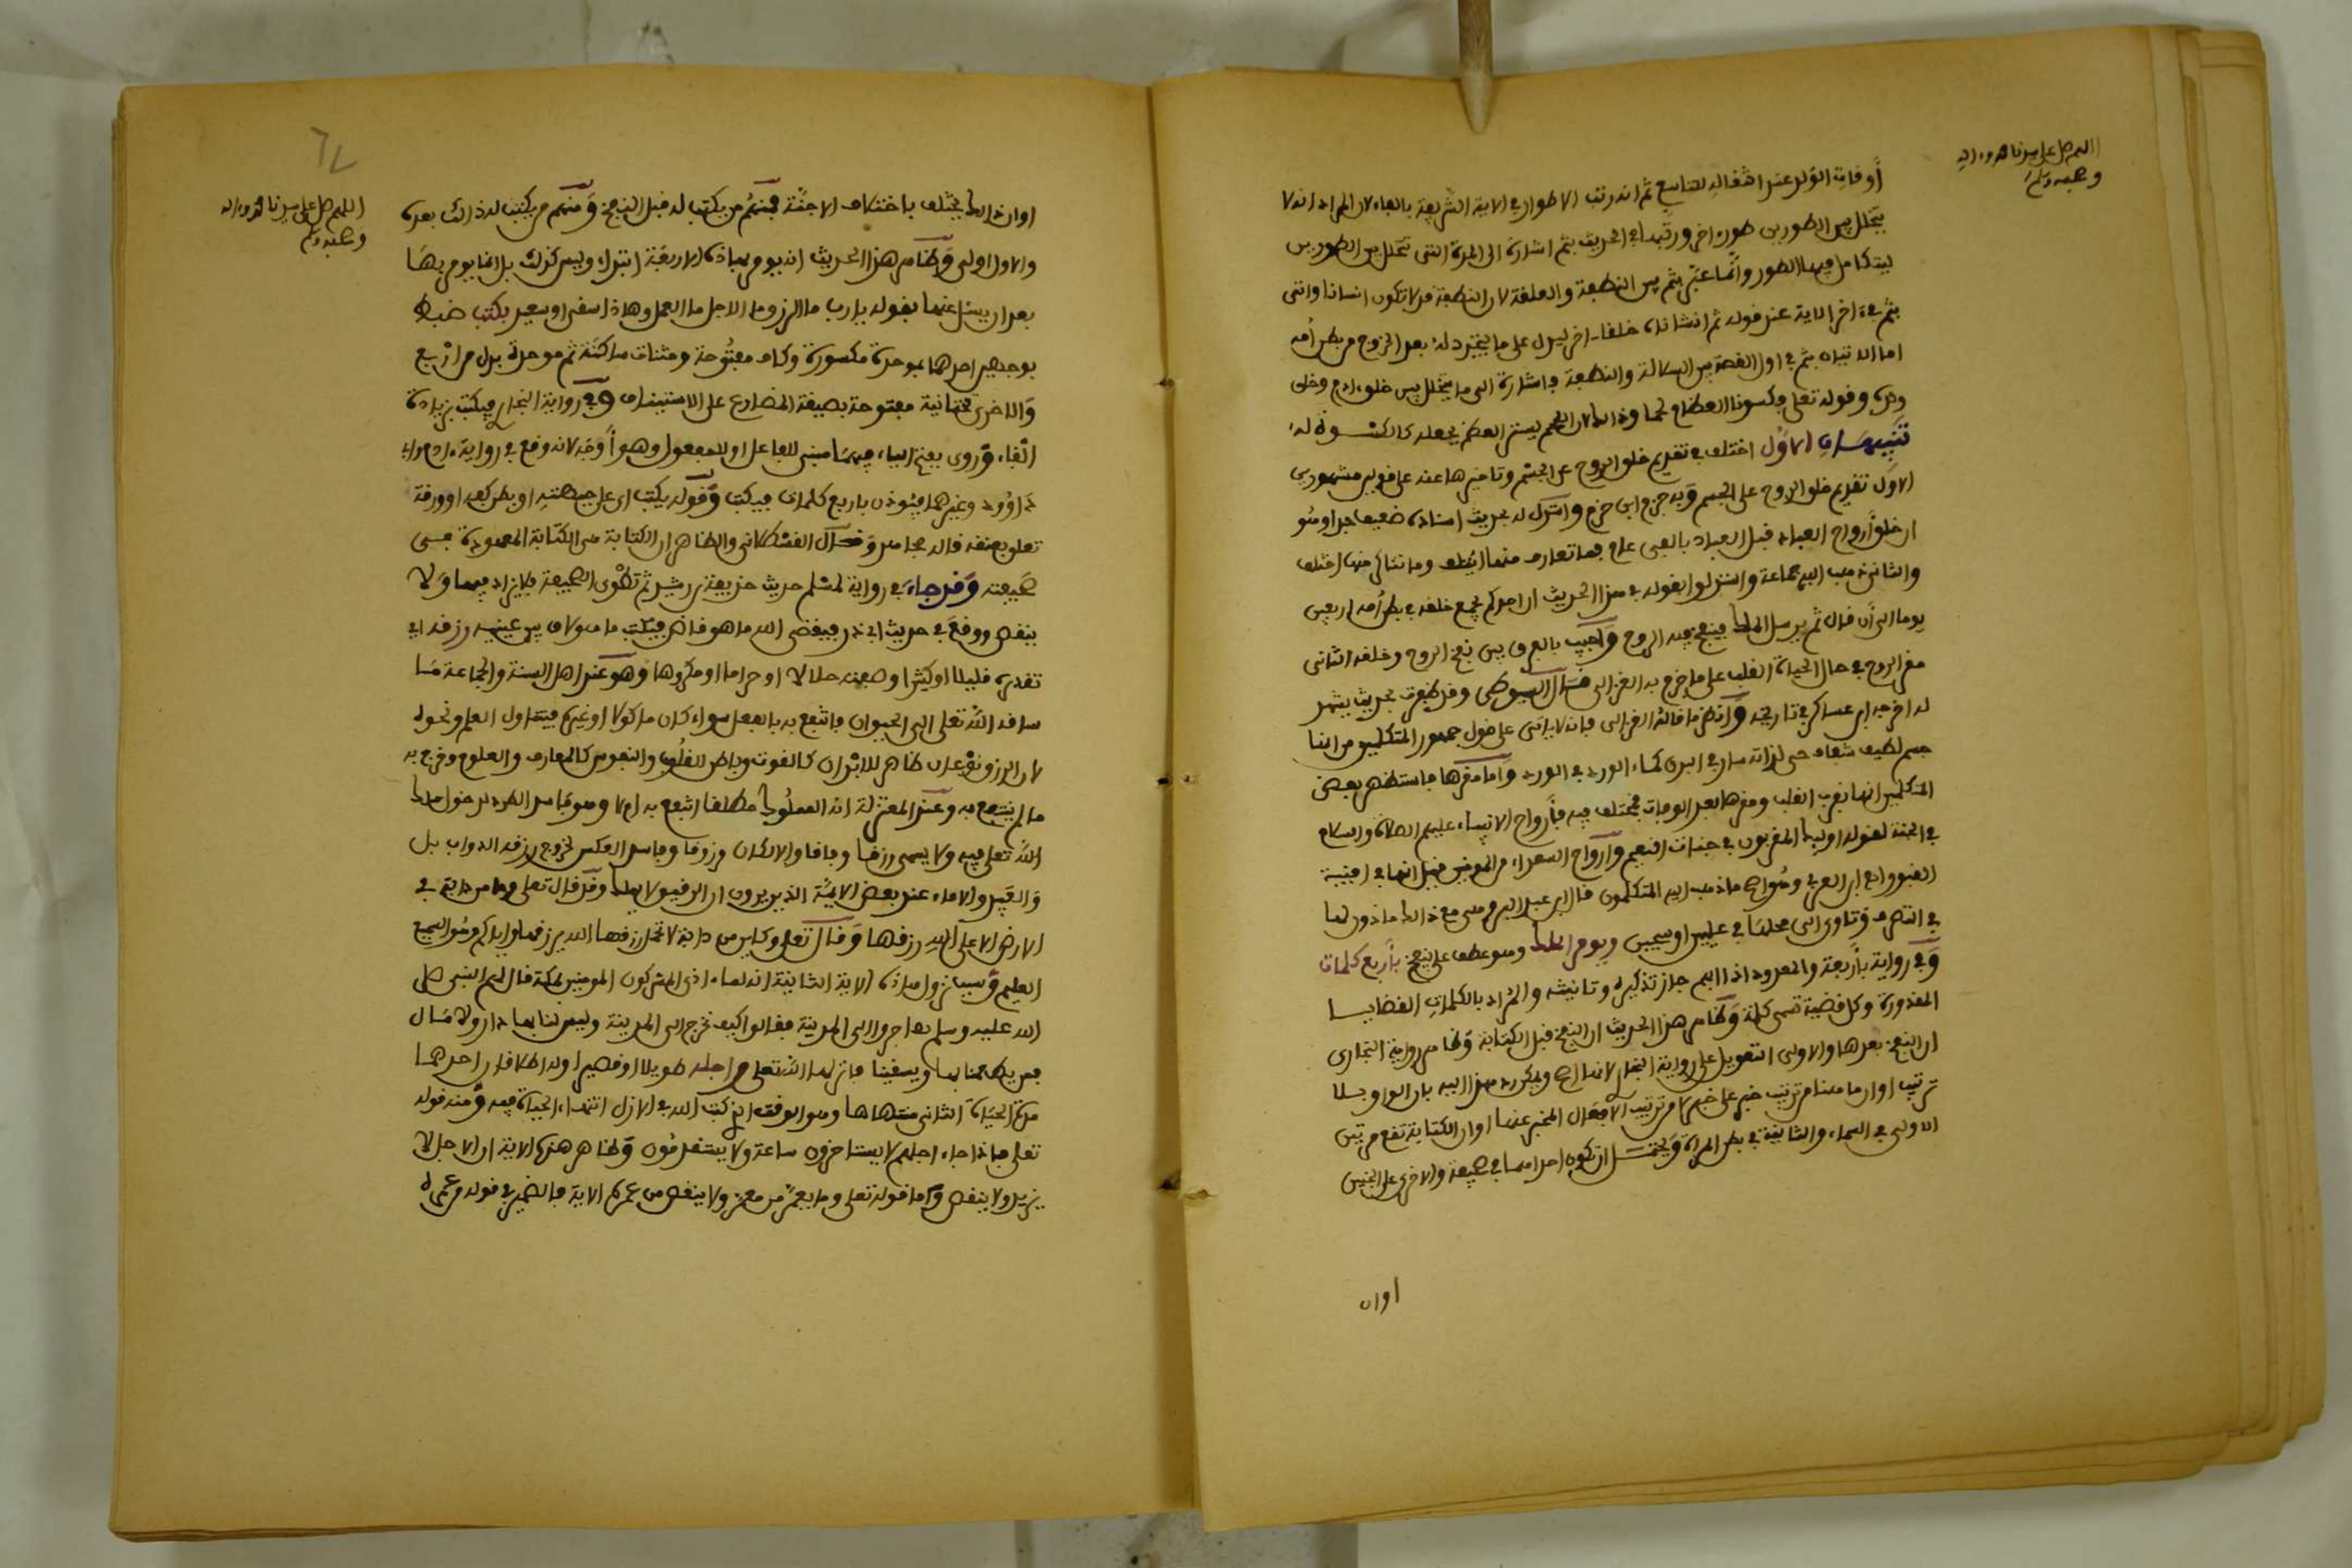 اللهم صل على سيدنا محمد وءاله
وصحبه وسلم
أوقات الولد عند انتقاله للتاسع ثم انه رتب الاطوار في الاية الشريفة بالفاء لان المراد انه لا
يتخلل بين الطورين طور ءاخر ورتبها في الحديث بثم اشارة الى المدة التى تتخلل بين الطورين
ليتكامل فيها الطور وانما عبر بثم بين النطفة والعلقة لان النطفة قد لا تكون انسانا واتى
بثم في ءاخر الاية عند قوله ثم انشاناه خلقا ءاخر ليدل على ما يتجدد له بعد الخروج من بطن أمه
اما الاتيان بثم في اول القصة بين السلالة والنطفة فاشارة الى ما يتخلل بين خلق ءادم وخلق
ولده وقوله تعلى فكسونا العظام لحما وذلك لان اللحم يستر العظم فجعله كالكسوة له
تنبيهان الاول اختلف في تقديم خلق الروح على الجسم وتاخيرها عنه على قولين مشهورين
الاول تقديم خلق الروح على الجسم وبه جزم ابن حزم واستدل له بحديث اسناده ضعيف جدا وهو
ان خلق أرواح العباد قبل العباد بالفى عام فما تعارف منها ائتلف وما تناكر منها اختلف
والثانى ذهب اليه جماعة واستدلوا بقوله في هذا الحديث ان احدكم يجمع خلقه في بطن أمه اربعين
يوما الى أن قال ثم يرسل الملك فينفخ فيه الروح وأجيب بالفرق بين نفخ الروح وخلقه الثانى
مقر الروح في حال الحياة القلب على ما جزم به الغزالى قال السيوطى وقد ظفرت بحديث يشهد
له اخرجه ابن عساكر في تاريخه وانظر ما قاله الغزالى فانه لا ياتى على قول جمهور المتكلمين من انها
جسم لطيف شفاف حي لذاته سار في البدن كماء الورد في الورد واما مقرها فاستظهر بعض
المتكلمين انها بقرب القلب ومقرها بعد الوفاة مختلف فيه فأرواح الانبياء عليهم الصلاة والسلام
في الجنة لقوله اوليك المقربون في جنات النعيم وأرواح السعداء من المومنين فقيل انها في افنية
القبور قال ابن العربي وهو اصح ما ذهب اليه المتكلمون قال ابن عبد البر وهى مع ذلك ماذون لها
في التصرف وتاوى الى محلها في عليين او سجين ويومر الملك وهو عطف على ينفخ بأربع كلمات
وفي رواية بأربعة والمعدود اذا ابهم جاز تذكيره وتانيثه والمراد بالكلمات القضايا
المقدورة وكل قضية تسمى كلمة وظاهر هذا الحديث ان النفخ قبل الكتابة وظاهر رواية البخارى
ان النفخ بعدها والاولى التعويل على رواية البخارى لانها اصح ويمكن رد هذا اليه بان الواو بلا
ترتيب او ان ما هنا من ترتيب خبر على خبر لا من ترتيب الافعال المخبر عنها او ان الكتابة تقع مرتين
الاولى في السماء والثانية في بطن المراة ويحتمل ان تكون احداهما في صحيفة والاخرى على الجبين
اوان
٦٧
اللهم صل على سيدنا محمد وءاله
وصحبه وسلم
اوان ذلك يختلف باختلاف الاجنة فمنهم من يكتب له قبل النفخ ومنهم من يكتب له ذالك بعده
والاول اولى وظاهر هذا الحديث انه يومر بهاذه الاربعة ابتداء وليس كذلك بل انما يومر بها
بعد ان يسئل عنها بقوله يارب ما الرزق ما الاجل ما العمل وهل هاذا شقى او سعيد بكتب ضبط
بوجهين احدهما بموحدة مكسورة وكاف مفتوحة ومثناة ساكنة ثم موحدة بدل من اربع
والاخرى تحتانية مفتوحة بصيغة المضارع على الاستيناف وفي رواية البخارى فيكتب بزيادة
الفاء وروى بفتح الياء وضمها مبنى للفاعل او للمفعول وهو أوجه لانه وقع في رواية ءادم وابى
داوود وغيرهما فيوذن باربع كلمات فيكتب وقوله يكتب اى على جبهته او بطن كفه او ورقة
تعلق بعنقه قاله مجاهد وقال القسطلانى والظاهر ان الكتابة هى الكتابة المعهودة فهى
صحيفته وقد جاء في رواية لمسلم حديث حذيفة بن رشيد ثم تطوى الصحيفة فلا يزاد فيها ولا
ينقص ووقع في حديث ابى ذر فيقضى الله ما هو قاض فيكتب ما هو لاق بين عينيه رزقه اي
تقديره قليلا او كثيرا وصفته حلالا او حراما او مكروها وهو عند اهل السنة والجماعة ما
ساقه الله تعلى الى الحيوان فانتفع به بالفعل سواء كان ماكولا او غيره فيتناول العلم ونحوه
لان الرزق نوعان ظاهر للابدان كالقوت وباطن للقلوب والنفوس كالمعارف والعلوم وخرج به
ما لم ينتفع به وعند المعتزلة انه المملوك مطلقا انتفع به ام لا وهو فاسد الطرد لدخول ملك
الله تعلى فيه ولا يسمى رزقا وفاقا والا لكان مرزوقا وفاسد العكس لخروج رزق الدواب بل
والعبيد والاماء عند بعض الايمة الذين يرون ان الرقيق لا يملك وقد قال تعلى وما من دابة في
الارض الا على الله رزقها وقال تعلى وكاين من دابة لا تحمل رزقها الله يرزقها واياكم وهو السميع
العليم وسبب نزول هاذه الاية الثانية انه لما ءاذى المشركون المومنين بمكة قال لهم النبى صلى
الله عليه وسلم هاجروا الى المدينة فقالوا كيف نخرج الى المدينة وليس لنا بها دار ولا مال
فمن يطعمنا بها ويسقينا فانزلها الله تعلى واجله طويلا او قصيرا وله اطلاقان احدهما
مدة الحياة الثانى منتهاها وهو الوقت الذى كتب الله في الازل انتهاء الحياة فيه ومنه قوله
تعلى فاذا جاء اجلهم لا يستاخرون ساعة ولا يستقدمون وظاهر هذه الاية ان الاجل لا
يزيد ولا ينقص واما قوله تعلى وما يعمر من معمر ولا ينقص من عمره الاية فالضمير في قوله من عمره